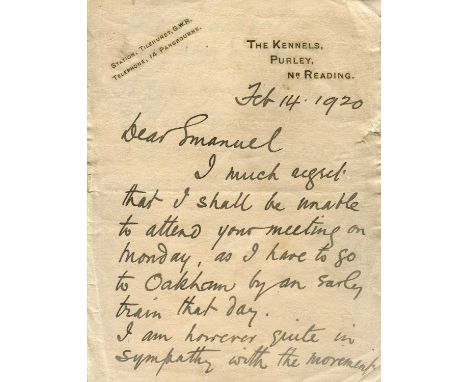 STATION, TILEHURST, G.W.R.
TELEPHONE, 14 PANGBOURNE.
THE KENNELS,
PURLEY,
NR READING.
Feb 14. 1920
Dear Emanuel
I much regret
that I shall be unable
to attend your meeting on
Monday, as I have to go
to Oakham by an early
train that day.
I am however quite in
sympathy with the movement